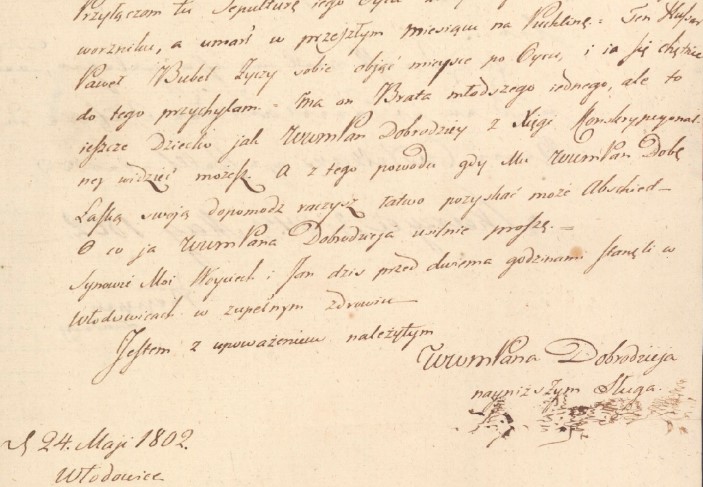 Przyłączam tu Sepulturę iego Oyca
worzniku, a umarł w przeszłym miesiącu na Puchlinę. Ten Husar
Paweł Bubel życzy sobie objąć mieysce po Oycu, i ia się chętnie
do tego przychylam. Ma on Brata młodszego iednego, ale to
ieszcze Dziecko jak WWMPan Dobrodziey z Xięgi Konskrypcyonal-
ney widzieć możesz. A z tego powodu gdy Mu WWMPan Dobr
Łaską swoją dopomodz raczysz łatwo pozyskać może Abschied—
O co ja WWMPana Dobrodzieja usilnie proszę.—
Synowie Moi Woyciech i Jan dziś przed dwiema godzinami stanęli w
Włodowicach w zupełnym zdrowiu—
Jestem z upoważeniem należytym
WWMPana Dobrodzieja
nayniższym Sługa.
d 24. Maji 1802.
Włodowice